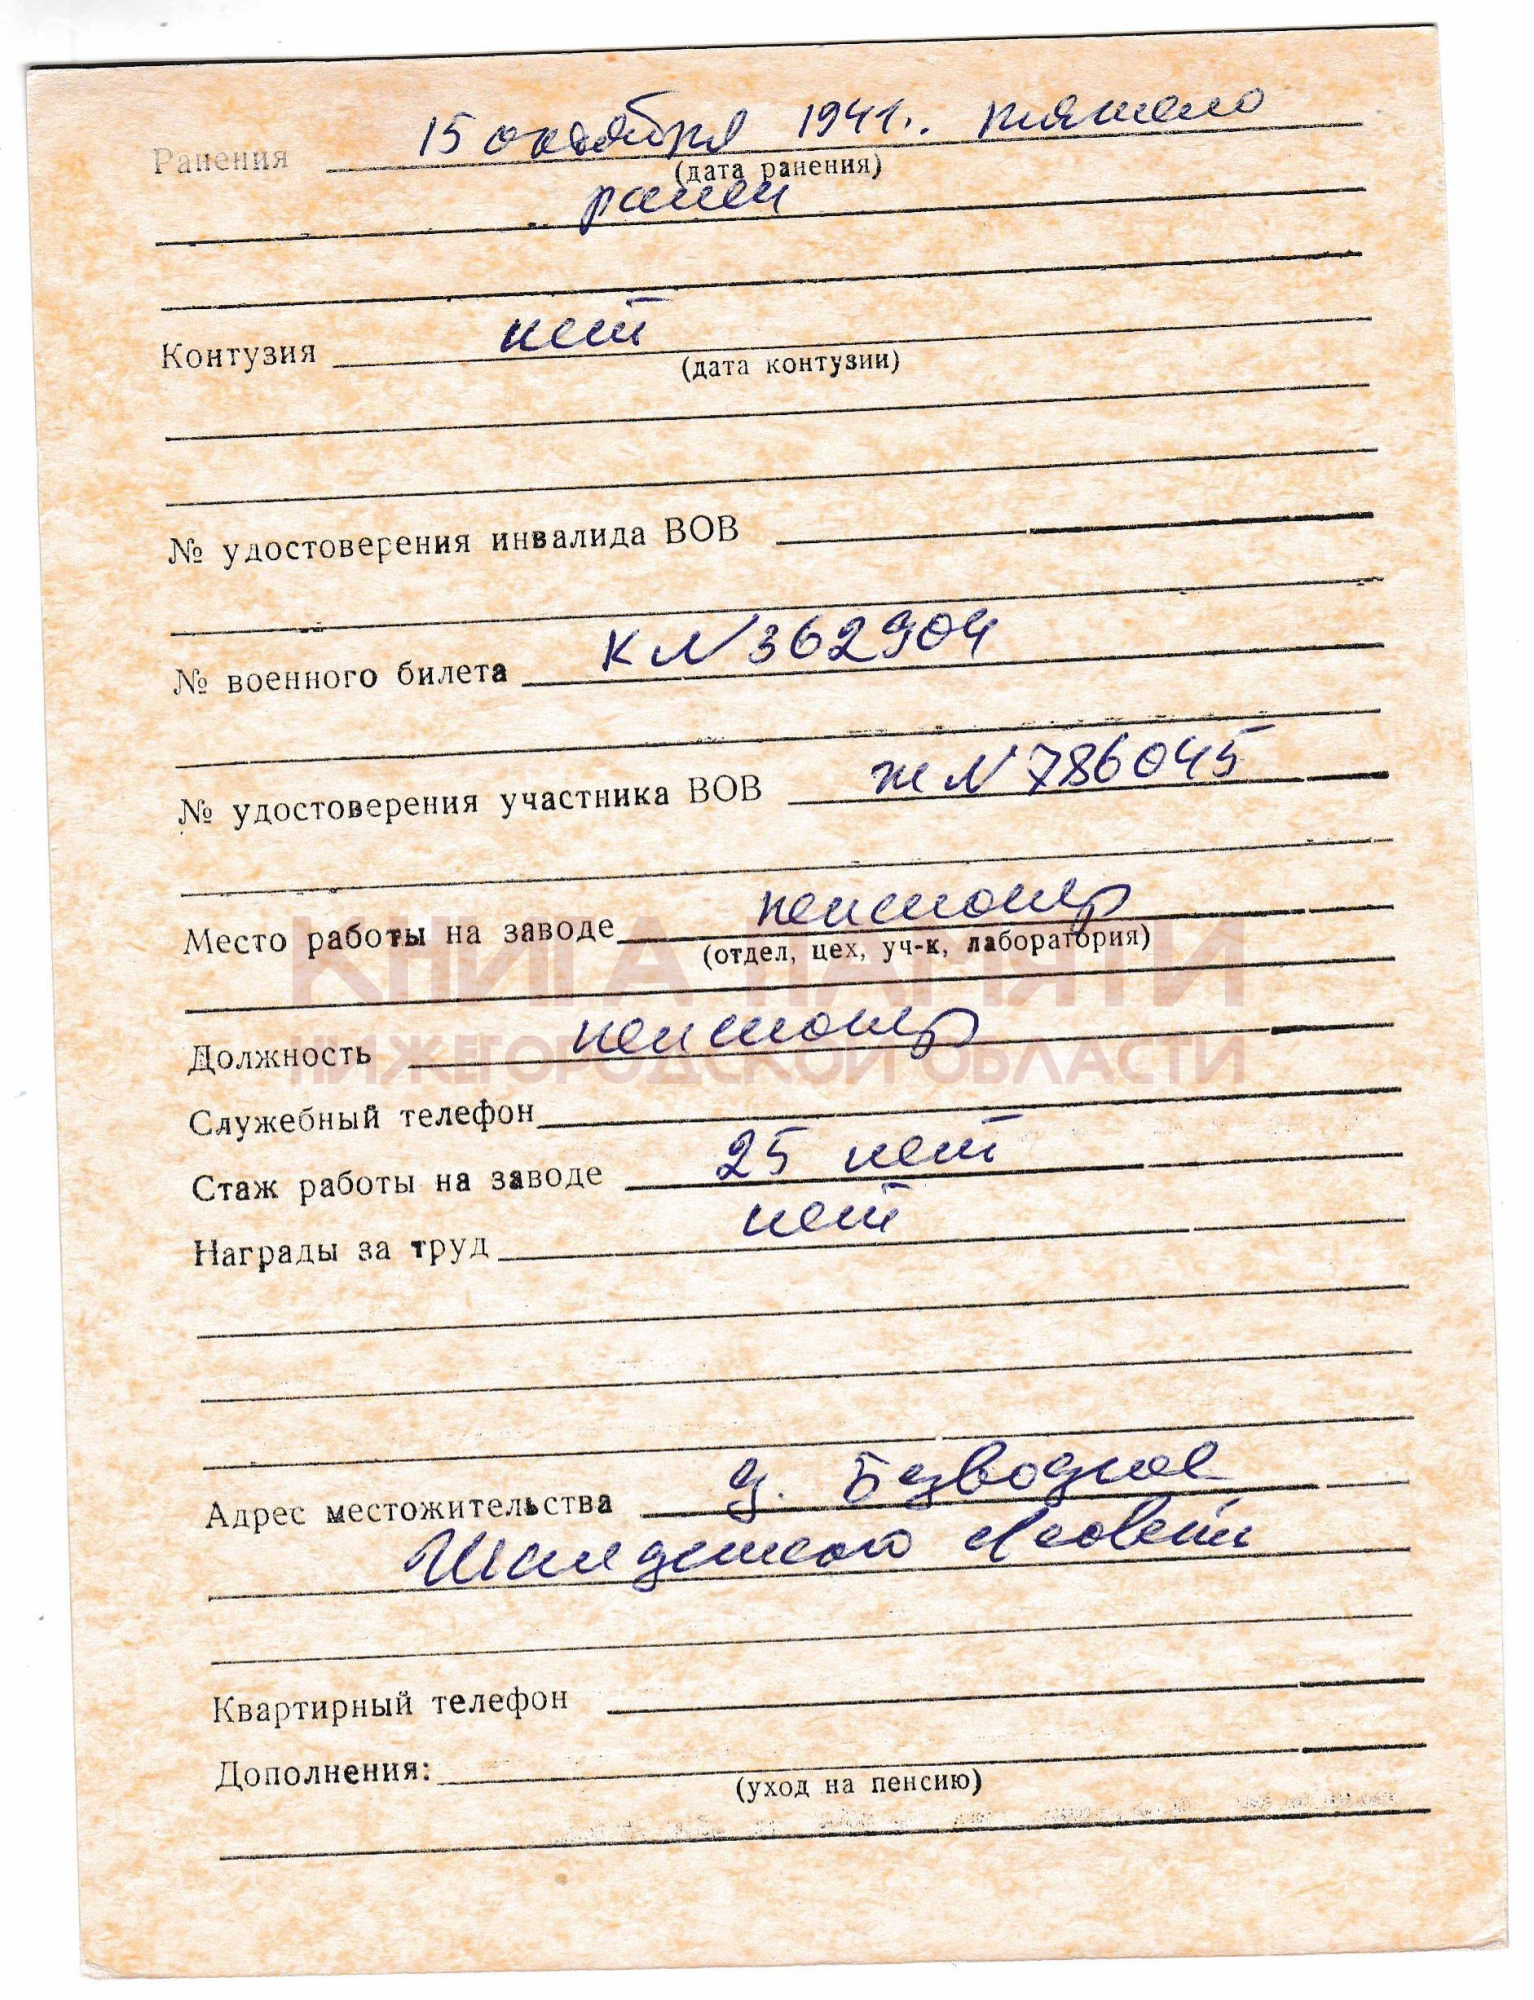 Ранения 15 октября 1941г. тяжело
(дата ранения)
ранен
Контузия нет
(дата контузии)
№ удостоверения инвалида ВОВ
№ военного билета К N 362904
№ удостоверения участника ВОВ Ж N 786045
Место работы на заводе пенсионер
(отдел, цех, уч-к, лаборатория)
КНИГА ПАМЯТИ
Должность пенсионер
НИЖЕГОРОДСКОЙ ОБЛАСТИ
Служебный телефон
Стаж работы на заводе 25 лет
Награды за труд нет
Адрес местожительства д. Безводное
С/совет
Квартирный телефон
Дополнения:
(уход на пенсию)